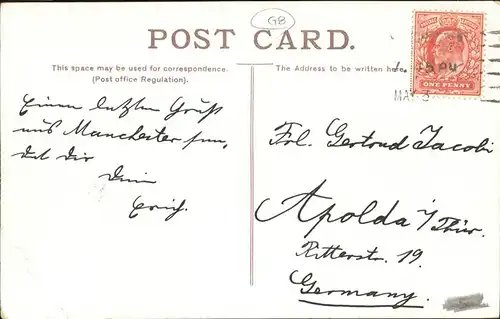 G8
POST CARD.
This space may be used for correspondence.
(Post office Regulation).
The Address to be written here.
POSTAGE REVENUE
ONE PENNY
MA
Einen letzten Gruß
aus Manchester sen,
det dir
Dein
Erich.
Frl. Gertrud Jacobi
Apolda i/Thür.
Ritterstr. 19.
Germany.